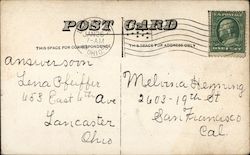 POST CARD
THIS SPACE FOR CORRESPONDENCE
THIS SPACE FOR ADDRESS ONLY
7-AM
OHIO
answer soon
Lena Pfeiffer
453 East 6th Ave
Lancaster
Ohio
Melvina Heming
2603-19th St
San Francisco
Cal.